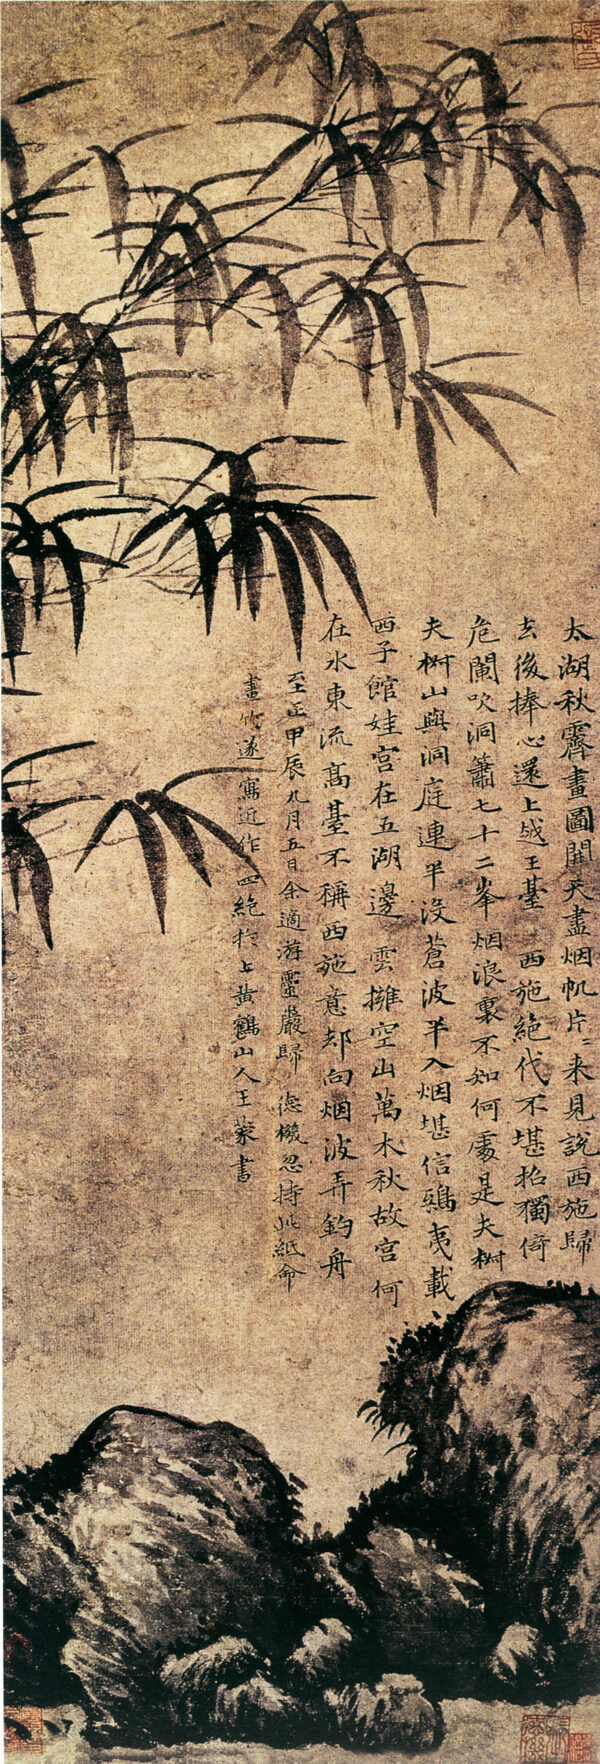 太湖秋霽畫圖開天盡烟帆片〻來見說西施歸
去後捧心還上越王臺 西施絕代不堪招獨倚
危闌吹洞簫七十二峯烟浪裏不知何處是夫椒
夫椒山與洞庭連半沒蒼波半入烟堪信鴟夷載
西子館娃宮在五湖邊 雲擁空山萬木秋故宮何
在水東流髙臺不稱西施意却向烟波弄釣舟
至正甲辰九月五日余適游靈巖歸 德機忽持此紙命
畫竹遂寫近作四絕於上黃鶴山人王蒙書